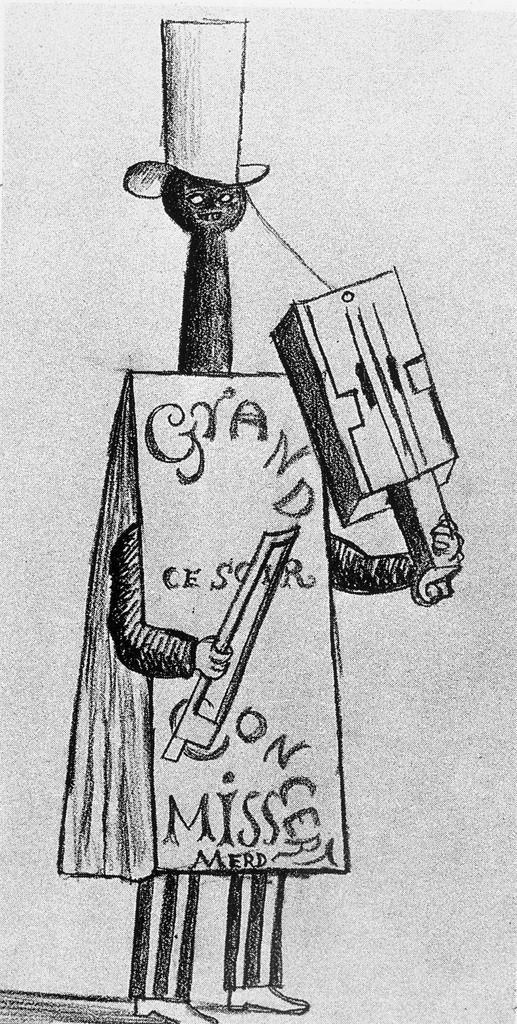 GRAND
CE SOIR
CONCERT
MISS
MERD